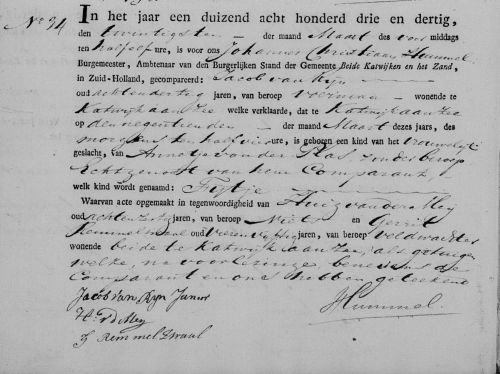 No 34.
In het jaar een duizend acht honderd drie en dertig,
den twintigsten der maand Maart des voor middags
ten half elf ure, is voor ons Johannes Christiaan Hummel
Burgemeester, Ambtenaar van den Burgerlijken Stand der Gemeente Beide Katwijken en het Zand,
in Zuid-Holland, gecompareerd: Jacob van Rijn
oud achtendertig jaren, van beroep wonende te
Katwijk aan Zee welke verklaarde, dat te Katwijk aan Zee
op den negentienden der maand Maart dezes jaars, des
morgens ten half vier ure, is geboren een kind van het vrouwelijk
geslacht, van Annetje van der Plas, zonder beroep
Echtgenoot van hem Comparant,
welk kind wordt genaamd:
Waarvan acte opgemaakt in tegenwoordigheid van van der Meij
oud jaren, van beroep en Gerrit
Remmelzwaal oud jaren, van beroep veldwachter
wonende beide te Katwijk aan Zee, als getuigen
welke, na voorlezinge benevens de
Comparant en ons hebben geteekend
Jacob van Rijn Junior
Hummel.
vd Meij
G Remmelzwaal